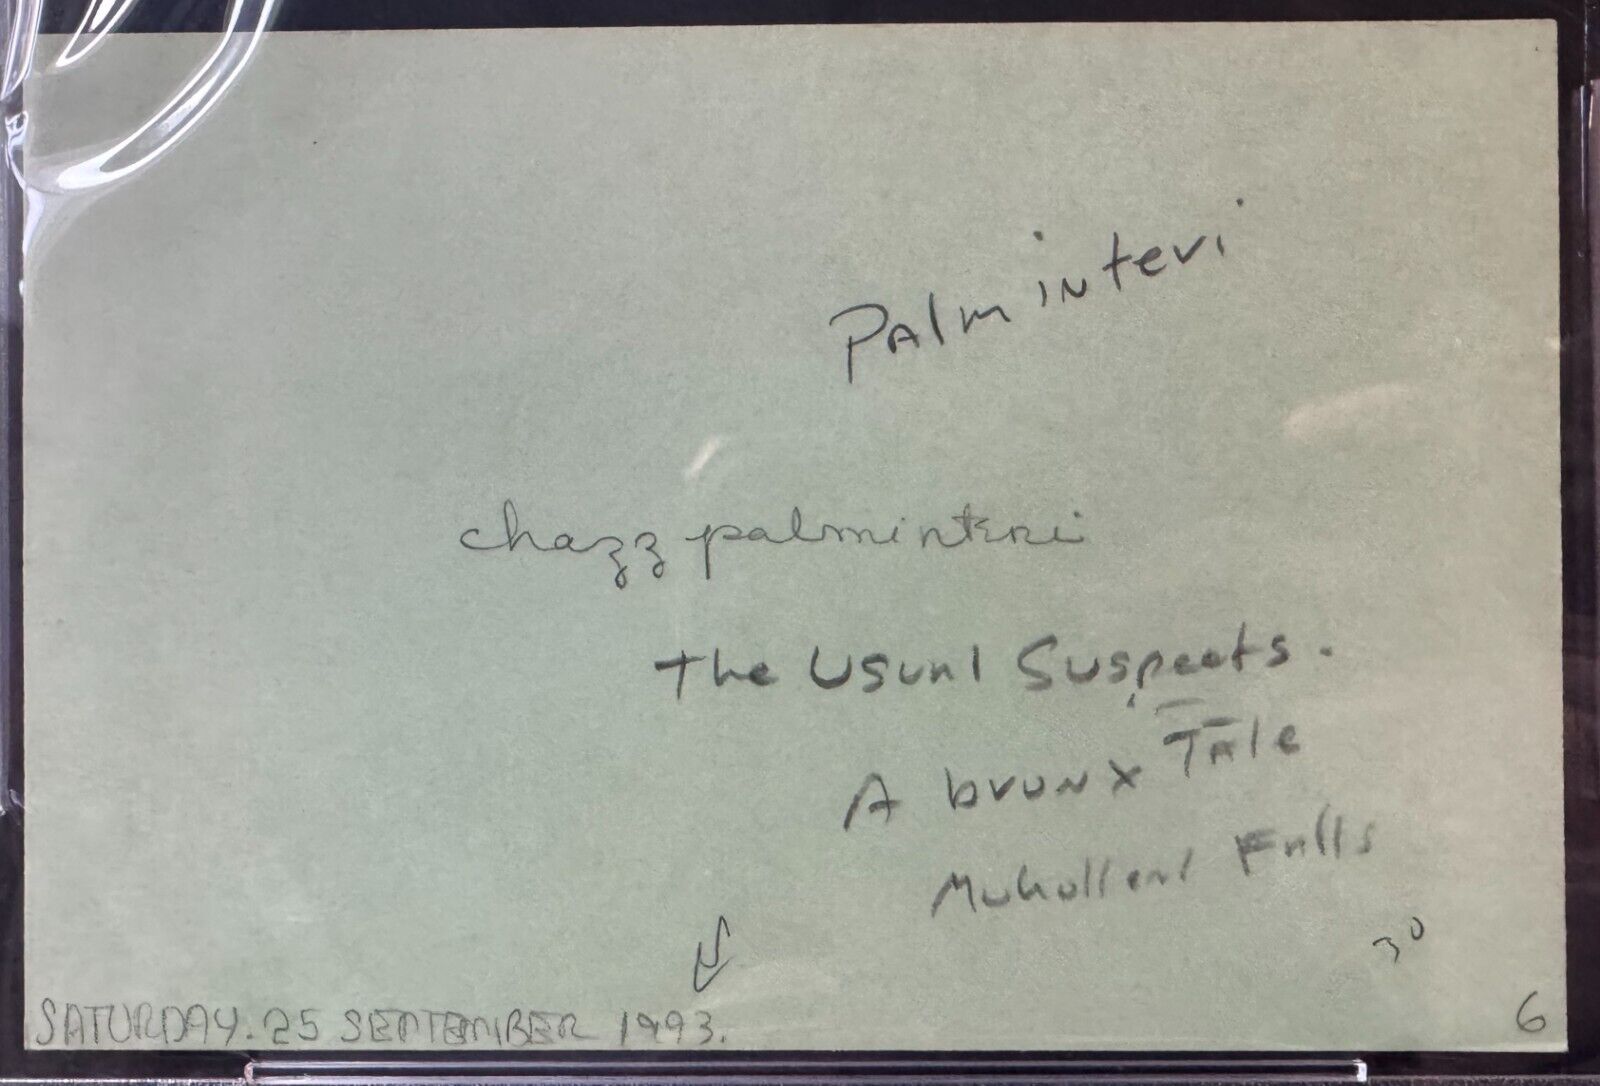 Palminteri
chazz palminteri
The Usual Suspects.
A bronx Tale
Muhollend Falls
30
SATURDAY. 25 SEPTEMBER 1993.
6